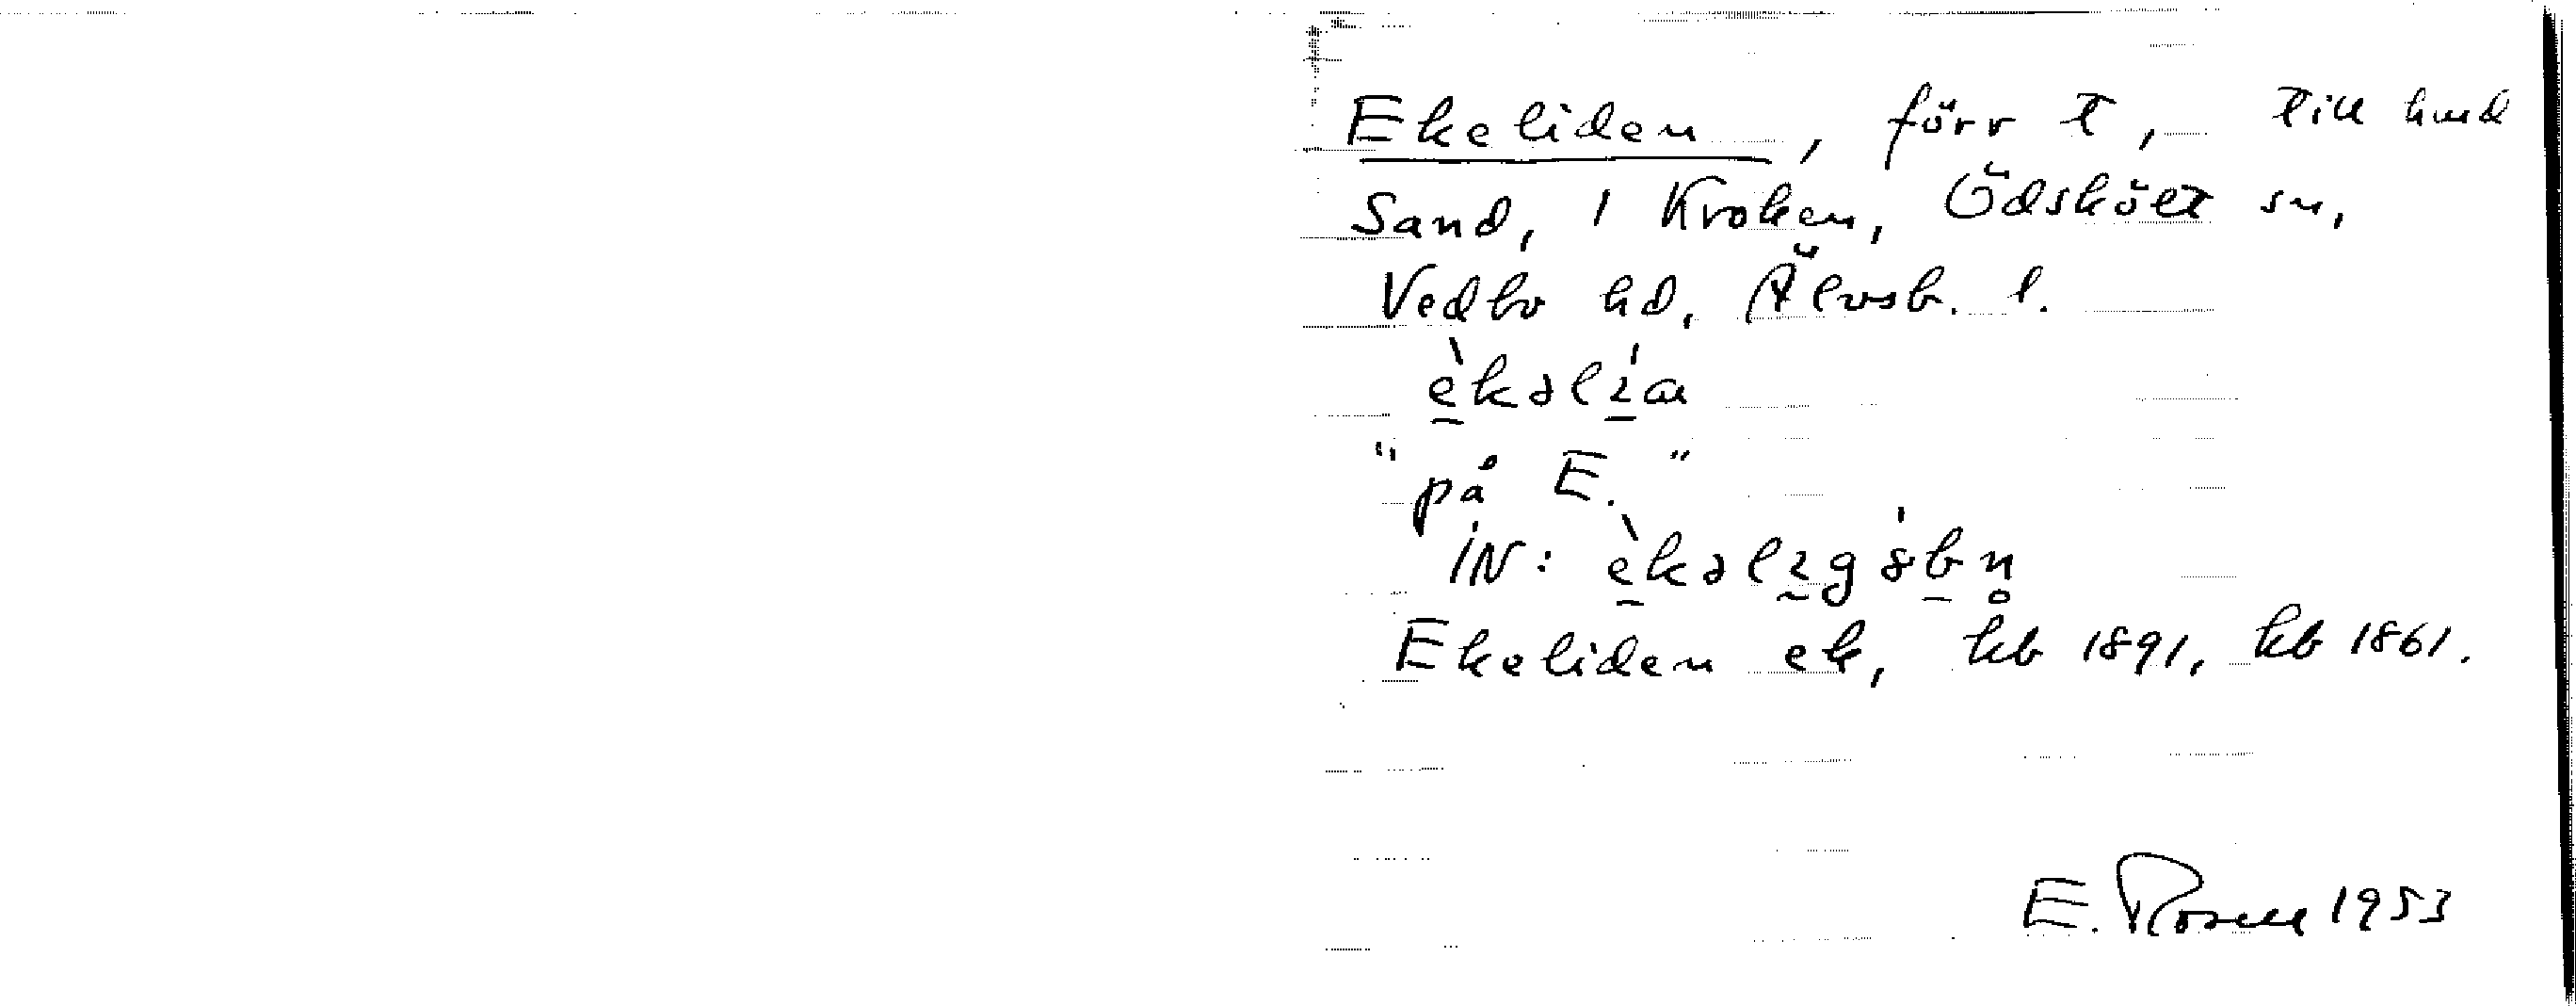 Ekeliden, förr t, till hmd
Sand, 1 Kroken, Ödskölt sn,
Vedbo hd, Älvsb. l.
"på E."
IN:
Ekeliden ek, kb 1891, kb 1861.
E. Rosell 1953